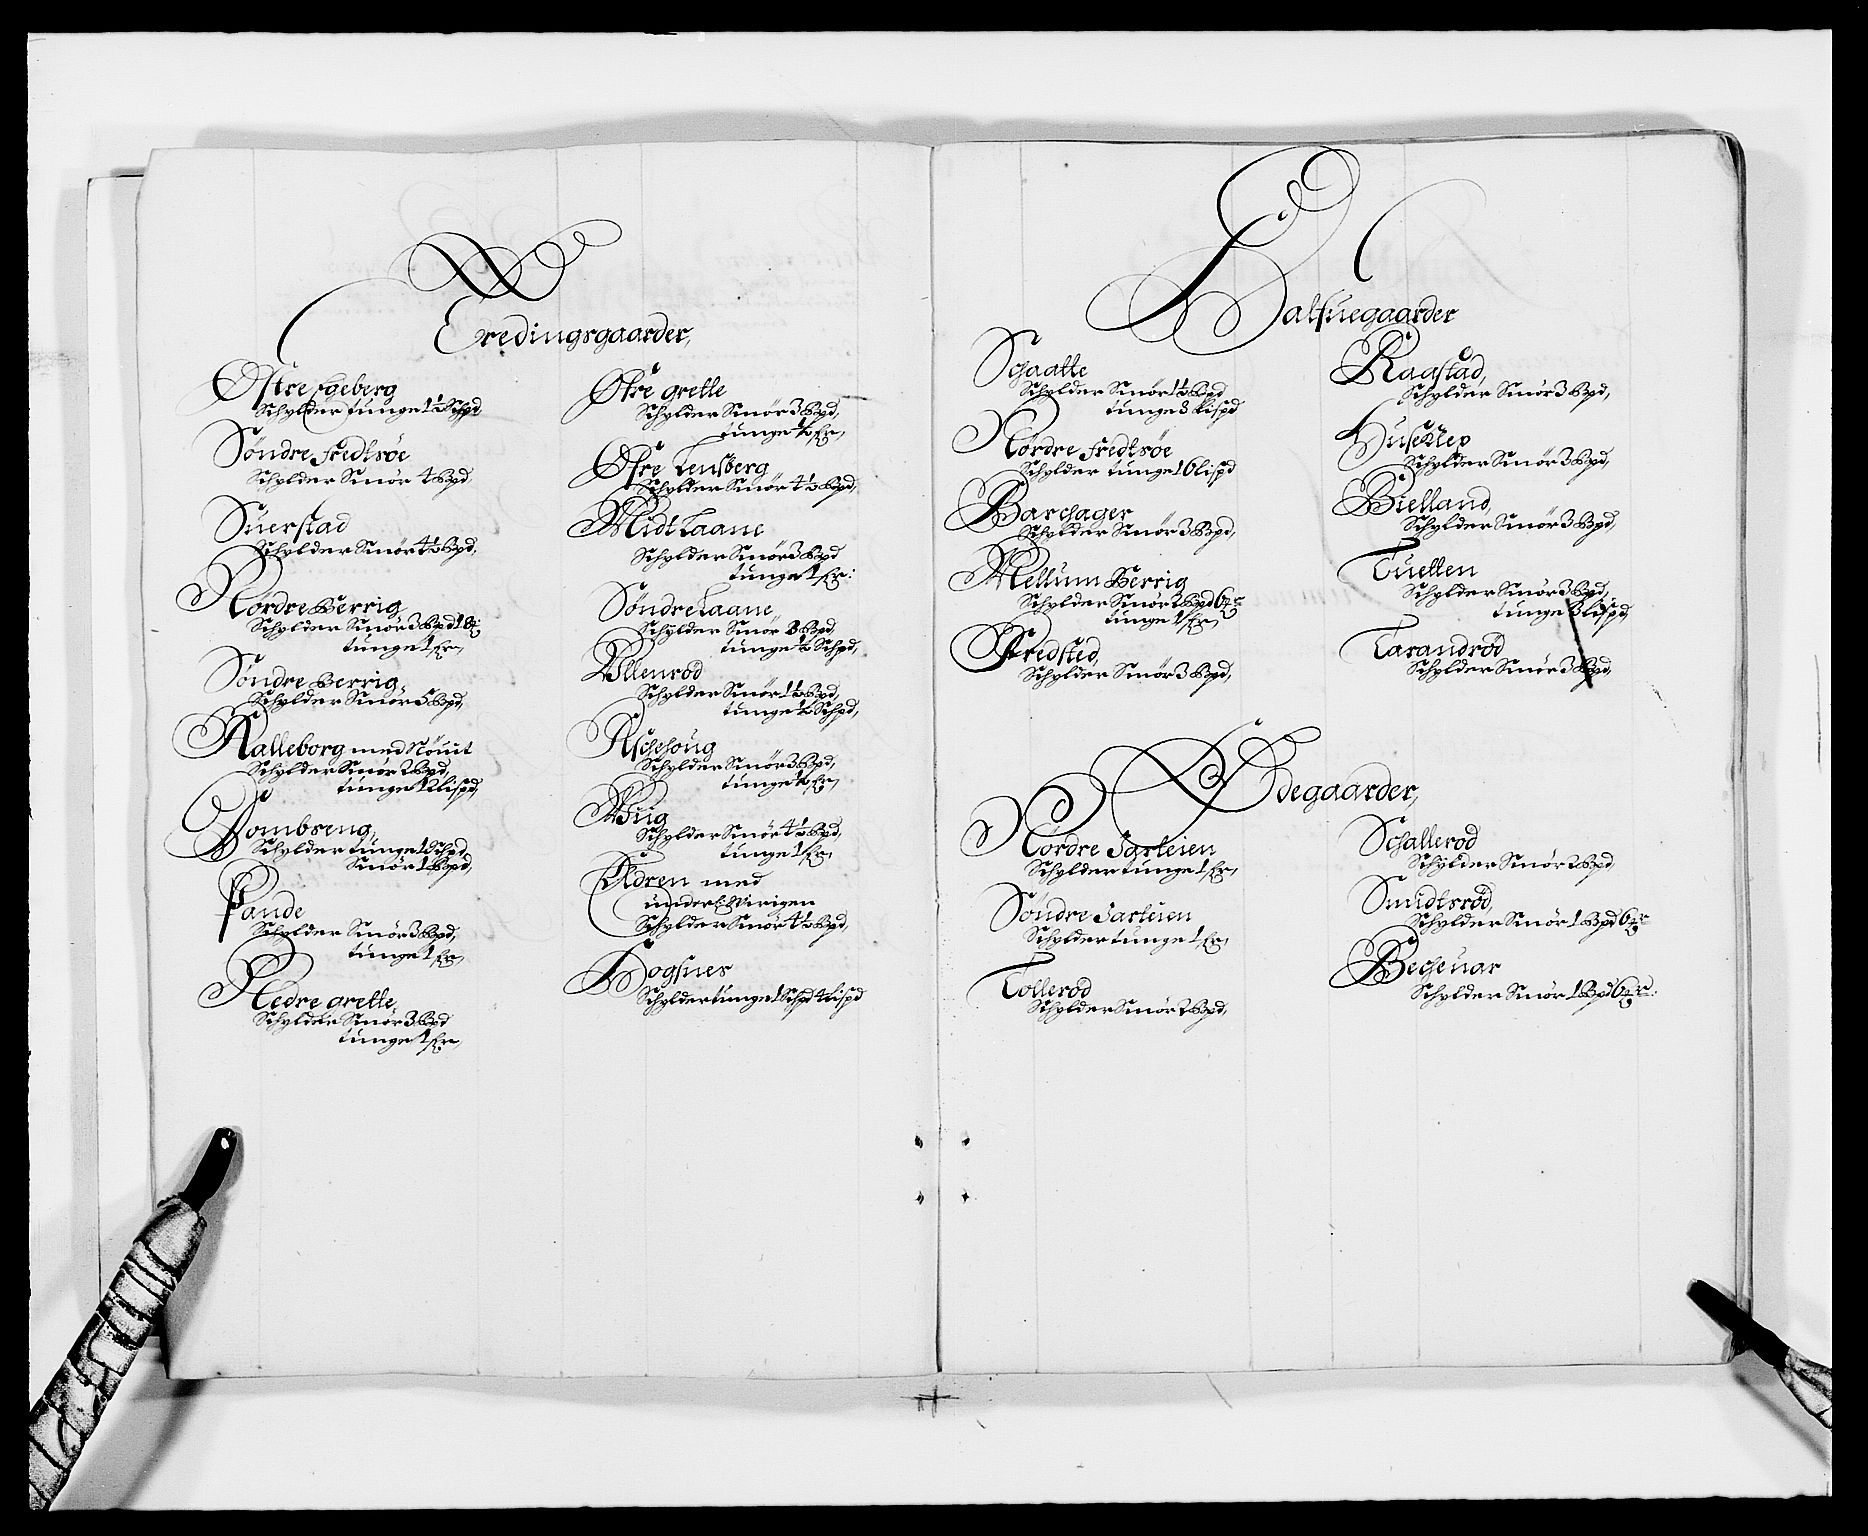 Tredingsgaarder,
Østre Egeberg
Schylder tunge 1½ Schpd
Søndre Fredtsøe
Schylder Smør 4 Bpd,
Suerstad
Schylder Smør 4½ Bpd,
Nordre Berrig
Schylder Smør 3 Bpd 18
tunge 1 fr,
Søndre Berrig,
Schylder Smør 5 Bpd,
Kalleborg med Nöuit
Schylder Smør 2 Bpd,
tunge 12 lispd,
Tombseng,
Schylder tunge 1 Schpd,
Smør 1 Bpd,
Pande
Schylder Smør 3 Bpd,
tunge 1 fr,
Nedre Grette,
Schylder Smør 3 Bpd
tunge 1 fr,
Øfre Grette
Schylder Smør 3 Bpd,
tunge ½ fr,
Øfre Lensberg
Schylder Smør 4½ Bpd,
Midt Laane
Schylder Smør 3 Bpd
tunge 1 fr:
Søndre Laane,
Schylder Smør 3 Bpd,
tunge ½ Schpd,
Ullenrød
Schylder Smør 1½ Bpd,
tunge ½ Schpd,
Aschehoug
Schylder Smør 3 Bpd,
tunge ½ fr,
Aug
Schylder Smør 4½ Bpd,
tunge 1 fr,
Adren med
underl: Virigen
Schylder Smør 4½ Bpd,
Hogsnes
Schylder tunge 1 Schpd 4 lispd
Halfuegaarder
Schaatte
Schylder Smør 1½ Bpd
tunge 8 lispd
Nordre Fredtsøe
Schylder tunge 16 lispd
Barchager
Schylder Smør 3 Bpd,
Mellum Berrig
Schylder Smør 2 Bpd 6
tunge 1 fr,
Fredsted,
Schylder Smør 3 Bpd,
Raastad,
Schylder Smør 3 Bpd,
Huseklep
Schylder Smør 3 Bpd,
Bielland,
Schylder Smør 3 Bpd,
Tuetten
Schylder Smør 3 Bpd,
tunge 3 lispd
Tarandrød
Schylder Smør 3 Bpd,
Ødegaarder,
Nordre Jarteien
Schylder tunge 1 fr,
Søndre Jarteien
Schylder tunge 1 fr,
Tollerød
Schylder Smør 2 Bpd,
Schallerød
Schylder Smør 2 Bpd,
Smidtsrød,
Schylder Smør 1 Bpd 6
Becheuar
Schylder Smør 1 Bpd 6